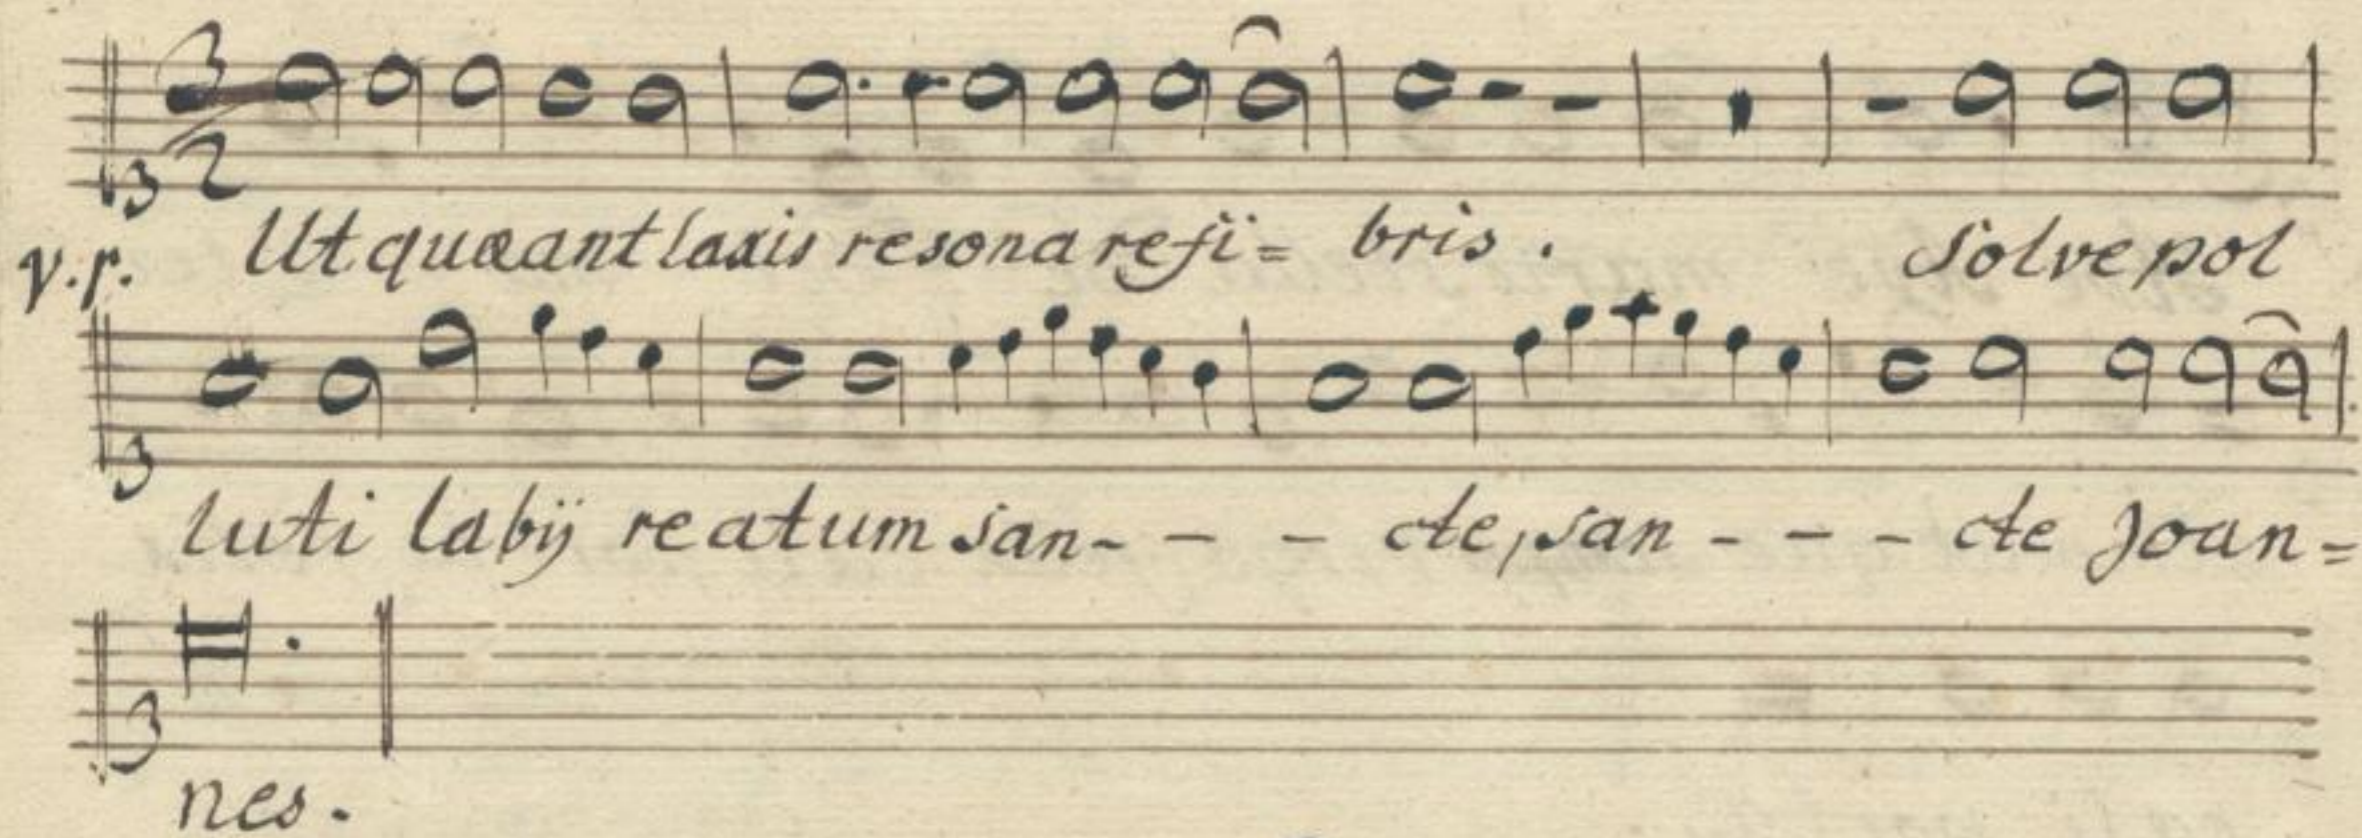 3
2
3
Ut quæant laxis resonare fi= bris. Solve pol
v.r.
3
luti labij reatum san- - - cte, san - - - cte Joan=
3
nes.